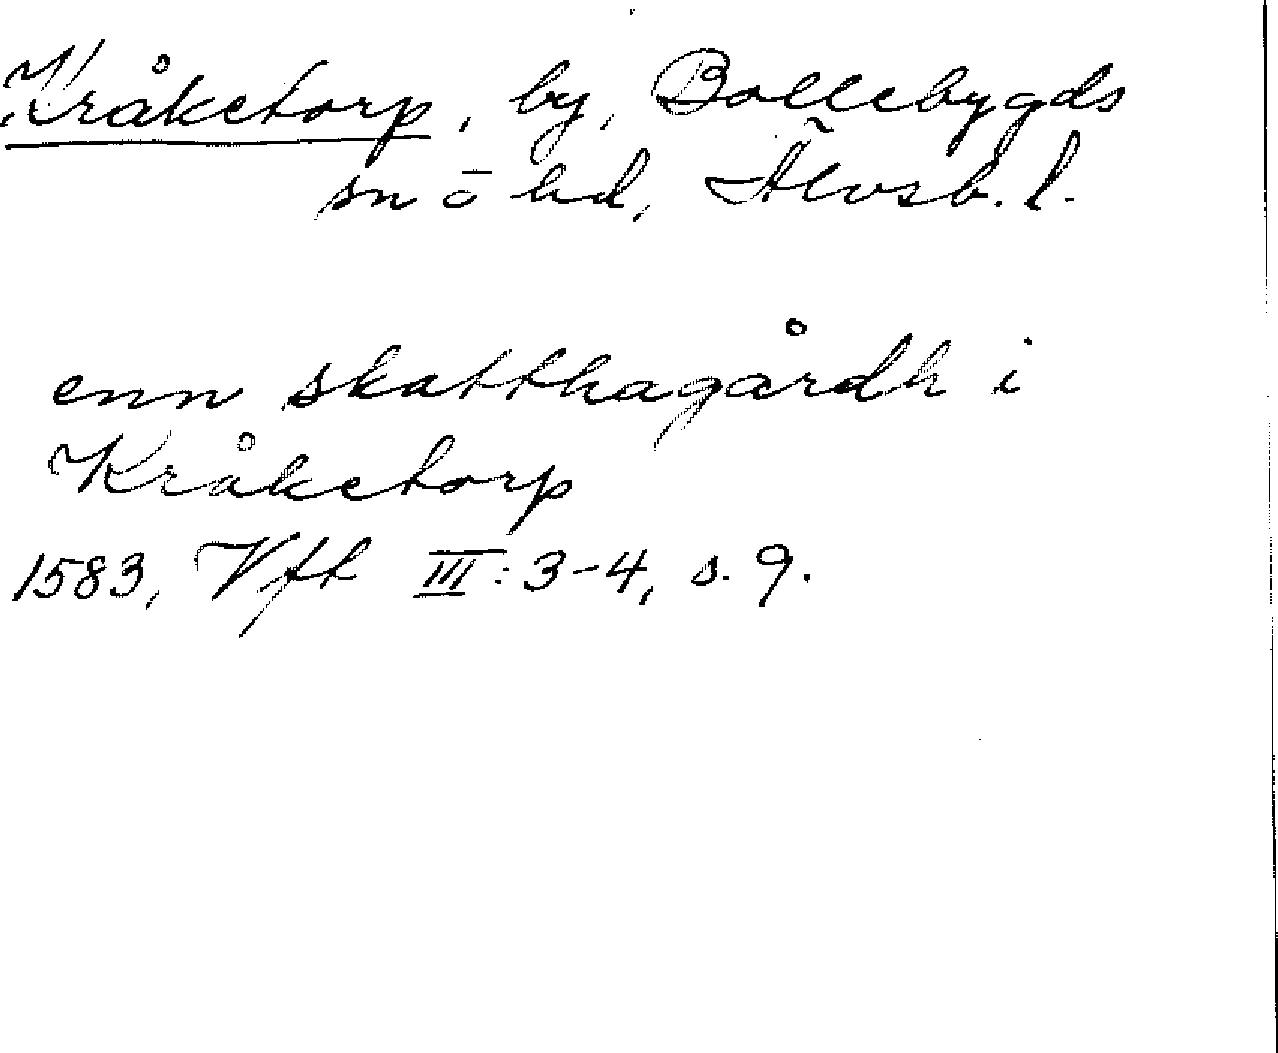 Kråketorp, by, Bollebygds
sn ō hd, Älvsb. l.
enn skatthagårdh i
Kråketorp
1583, Vft III: 3-4, s. 9.